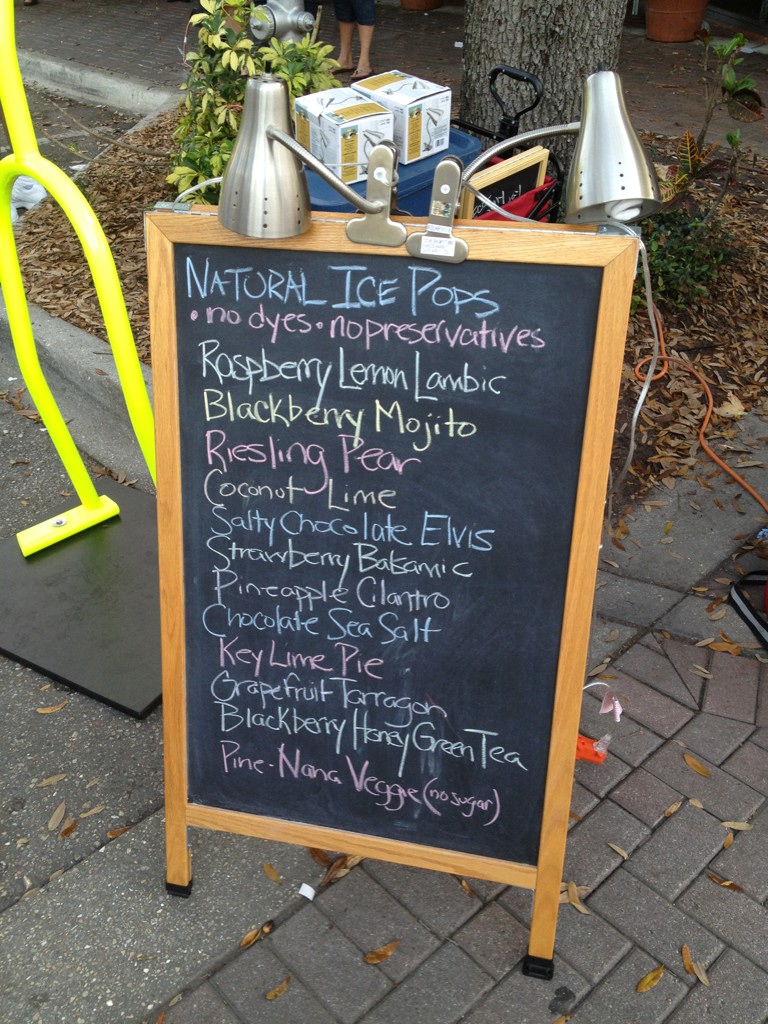 NATURAL ICE POPS
• no dyes • no preservatives
Raspberry Lemon Lambic
Blackberry Mojito
Riesling Pear
Coconut Lime
Salty Chocolate Elvis
Strawberry Balsamic
Pineapple Cilantro
Chocolate Sea Salt
Key Lime Pie
Grapefruit Tarragon
Blackberry Honey Green Tea
Pine-Nana Veggie (no sugar)